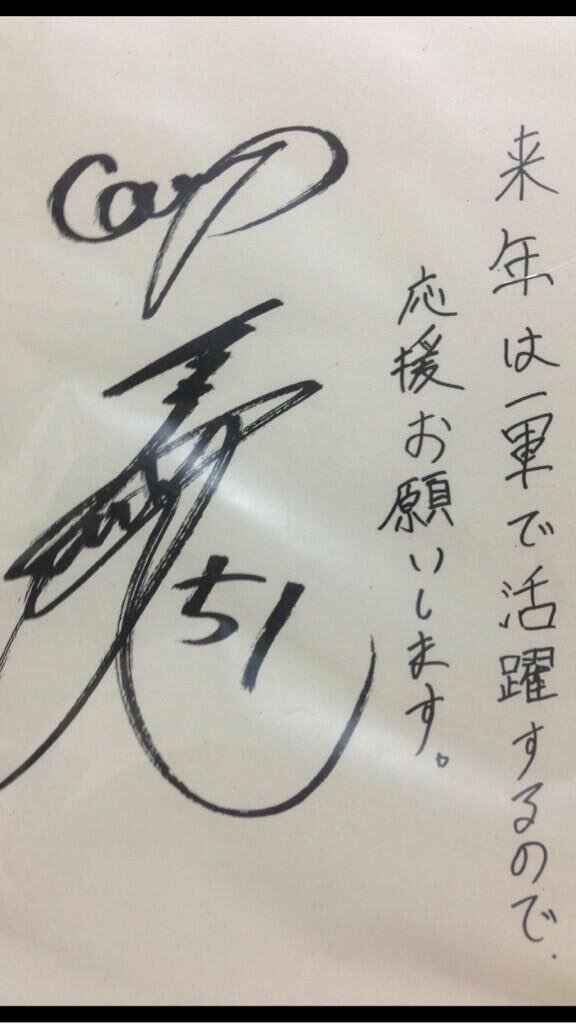 来年は一軍で活躍するので、
応援お願いします。
Carp
51